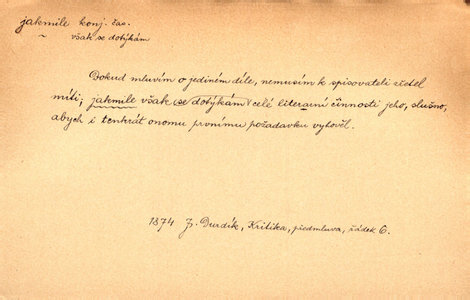 jakmile konj. čas.
~ však se dotýkám
Dokud mluvím o jediném díle, nemusím k spisovateli zřetel
míti; jakmile však se dotýkám celé literarní činnosti jeho, slušno,
abych i tenkrát onomu prvnímu požadavku vyhověl.
1874 J. Durdík, Kritika, předmluva, řádek 6.